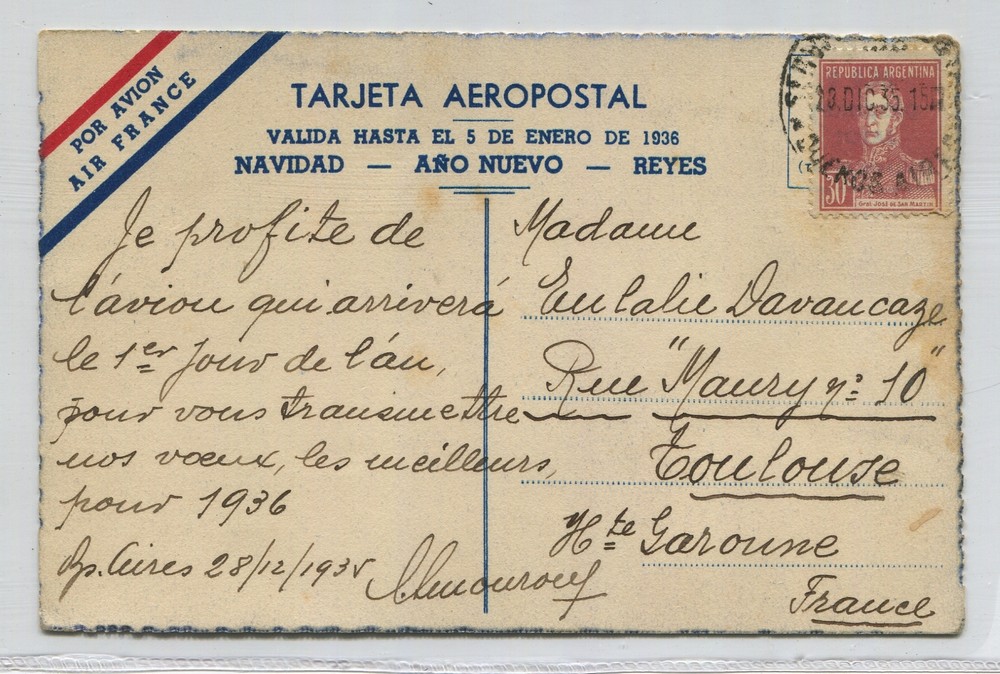 POR AVION
AIR FRANCE
TARJETA AEROPOSTAL
VALIDA HASTA EL 5 DE ENERO DE 1936
NAVIDAD — AÑO NUEVO — REYES
REPUBLICA ARGENTINA
28.DIC.35.15
BUENOS AIRES
30
Gral. José de San Martin
Je profite de
l'avion qui arriverá
le 1er Jour de l'án,
pour vous transmettre
nos vœux, les meilleurs
pour 1936
Bs. Aires 28/12/1935
Madame
Eulalie Davancaze
Rue "Maury nº 10"
Toulouse
Hte Garonne
France